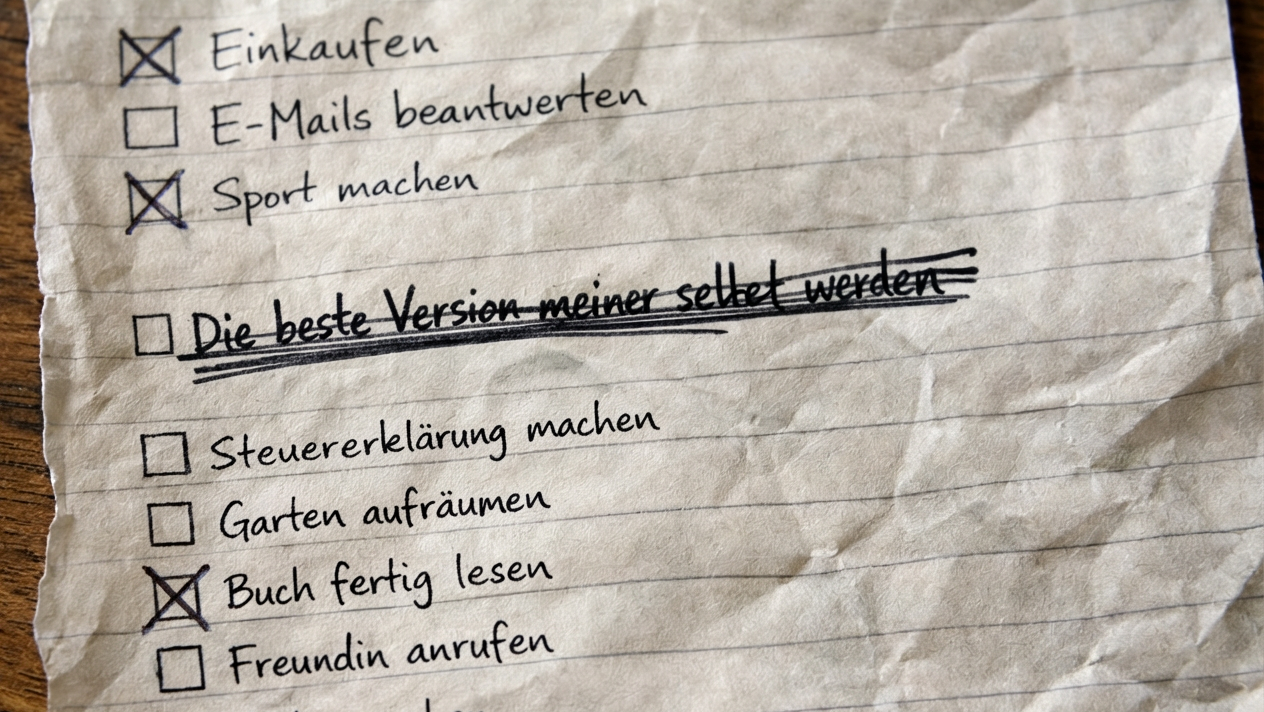 Einkaufen
E-Mails beantwerten
Sport machen
Die beste Version meiner selbst werden
Steuererklärung machen
Garten aufräumen
Buch fertig lesen
Freundin anrufen